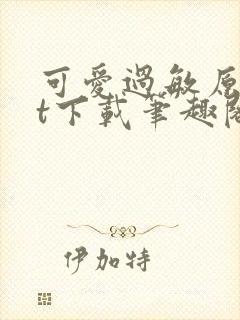 可愛過敏原
t下載筆趣閣
伊加特